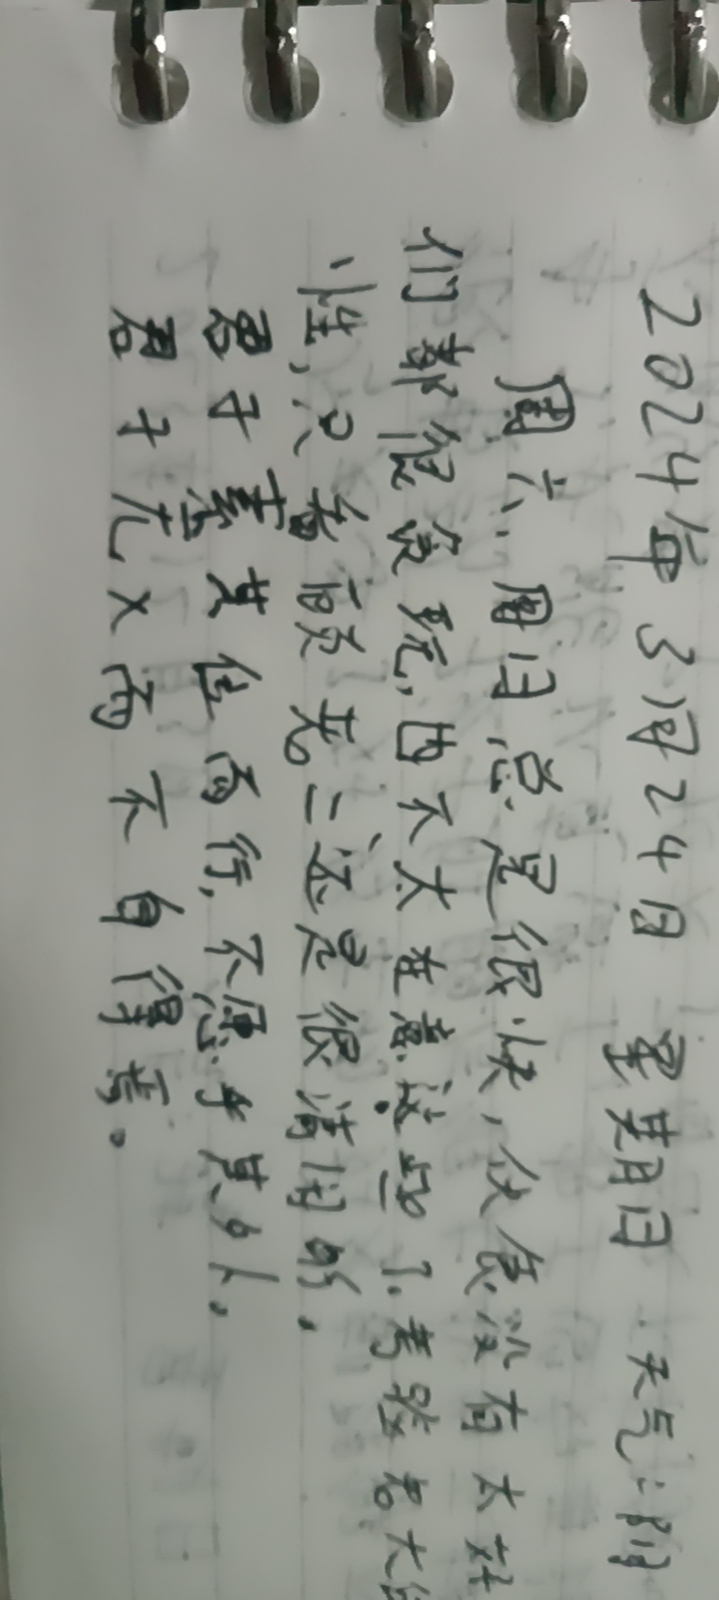 2024年3月24日 星期日 天气:阴
周六、周日总是很快,伙食没有太好
们都很贪玩,也不太在意这些了.考验老大
性,只看顾老二、还是很清闲的.
君子素其位而行,不愿乎其外。
君子无入而不自得焉。